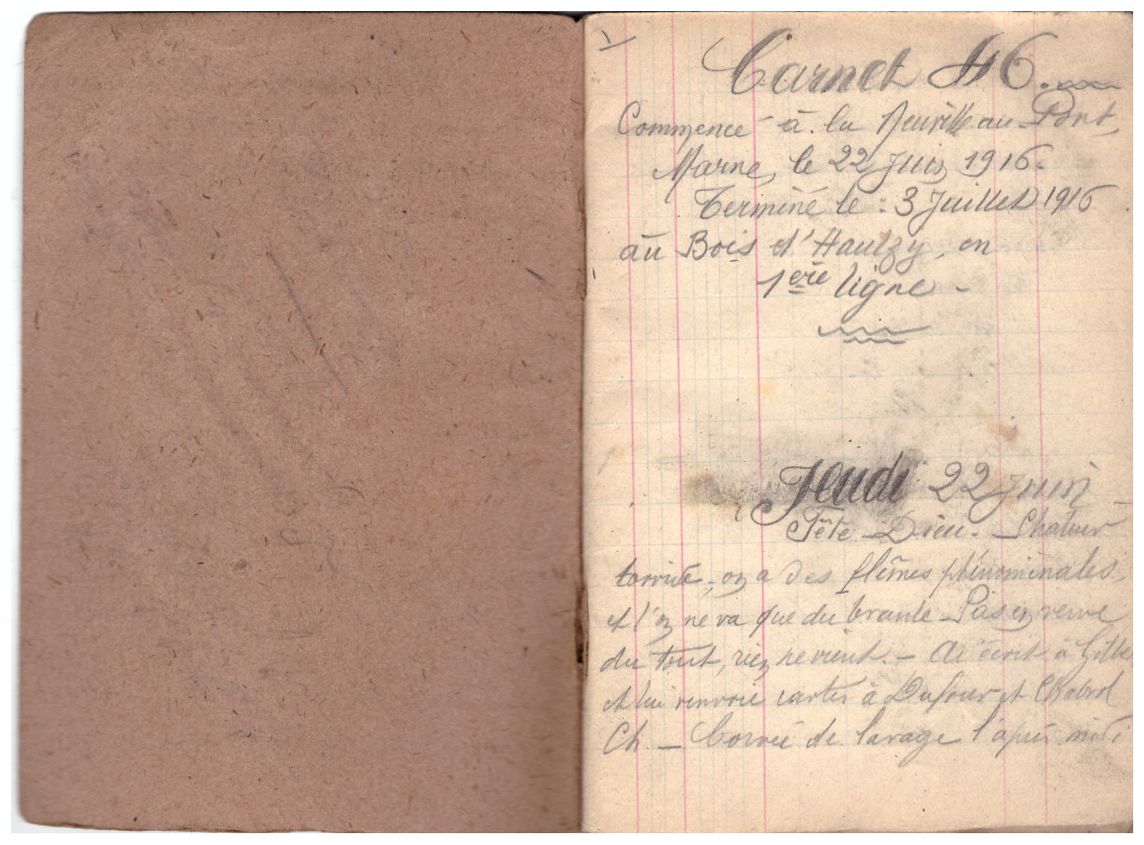 1
Carnet 46.
Commencé à la Neuville au Pont,
Marne, le 22 Juin 1916.
Terminé le : 3 Juillet 1916
au Bois d'Hauzy, en
1ère ligne -
Jeudi 22 Juin -
Fête-Dieu. Chaleur
torride, on a des flêmes phénoménales,
et l'on ne va que du branle. Pas en verve
du tout, rien ne vient. - Ai écrit à Gilbe
et lui renvoie cartes à Dufour et Chabrol
Ch. - Corvée de lavage l'après midi